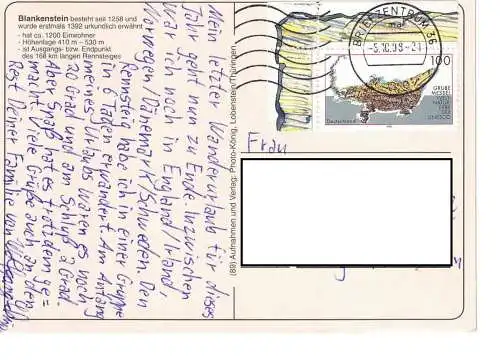 Blankenstein besteht seit 1258 und
wurde erstmals 1392 urkundlich erwähnt
- hat ca. 1200 Einwohner
- Höhenlage 410 m – 530 m
- ist Ausgangs- bzw. Endpunkt
des 168 km langen Rennsteiges
Mein letzter Wanderurlaub für dieses
Jahr geht nun zu Ende. Inzwischen
war ich noch in England/Irland,
Norwegen/Dänemark/Schweden. Den
Rennsteig habe ich in einer Gruppe
in 6 Tagen erwandert. Am Anfang
meines Urlaubs waren es noch
20 Grad und am Schluß 2 Grad.
Aber Spaß hat es trotzdem ge-
macht. Viele Grüße auch an den
Rest Deiner Familie von
(89) Aufnahmen und Verlag: Photo-König, Lobenstein/Thüringen
BRIEFZENTRUM 36
-5.10.98-21
100
GRUBE
MESSEL
NATUR
ERBE
UNESCO
Deutschland
Frau